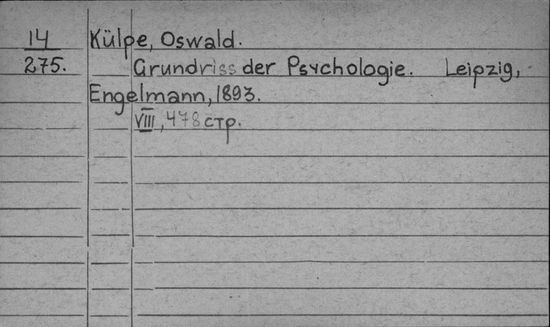 14 Külpe, Oswald.
275. Grundriss der Psychologie. Leipzig,
Engelmann, 1893.
VIII, 478 стр.